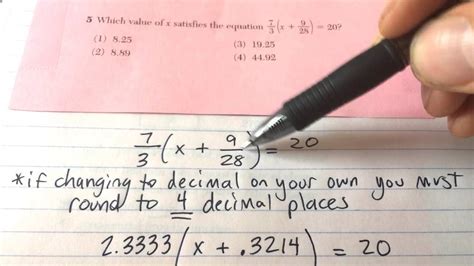 5 Which value of x satisfies the equation 7/3(x + 9/28) = 20?
(1) 8.25 (3) 19.25
(2) 8.89 (4) 44.92
7/3(x + 9/28) = 20
*if changing to decimal on your own you must
round to 4 decimal places
2.3333(x + .3214) = 20